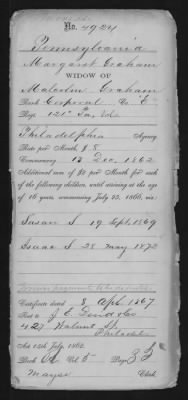 No. 4924
Pennsylvania
Margaret Graham
WIDOW OF
Malcolm Graham
Rank Corporal Co. E
Reg. 121st Pa. Vols
Philadelphia Agency
Rate per Month, $ 8
Commencing 13 Dec. 1862
Additional sum of $2 per Month for each
of the following children, until arriving at the age
of 16 years, commencing July 25, 1866, viz:
Susan S. 19 Sept. 1869
Isaac S. 28 May 1872
Certificate dated 8 Apl. 1867
427 Walnut St.
Act 14th July, 1862.
Book Vol. 5 Page 35
Clerk.